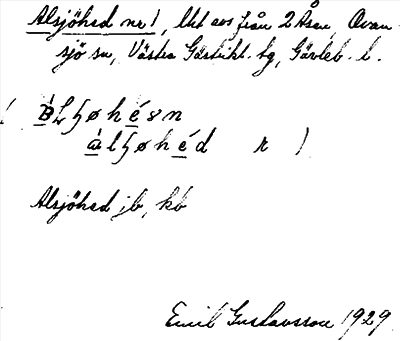 Alsjöhed nr 1, litt aos från 2 Åsen, Ovan-
sjö sn, Västra Gästrikl. tg, Gävleb. l.
øhésn
øhéd r )
Alsjöhed jb, kb
Emil Gustavsson 1929